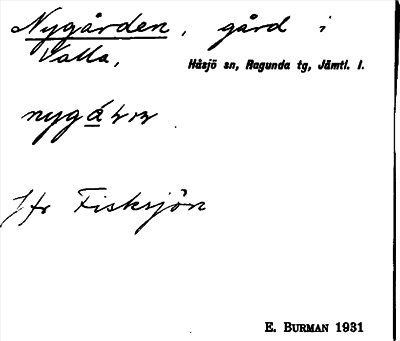 Nygården, gård i
Valla,
Håsjö sn, Ragunda tg, Jämtl. l.
Jfr Fisksjön
E. BURMAN 1931